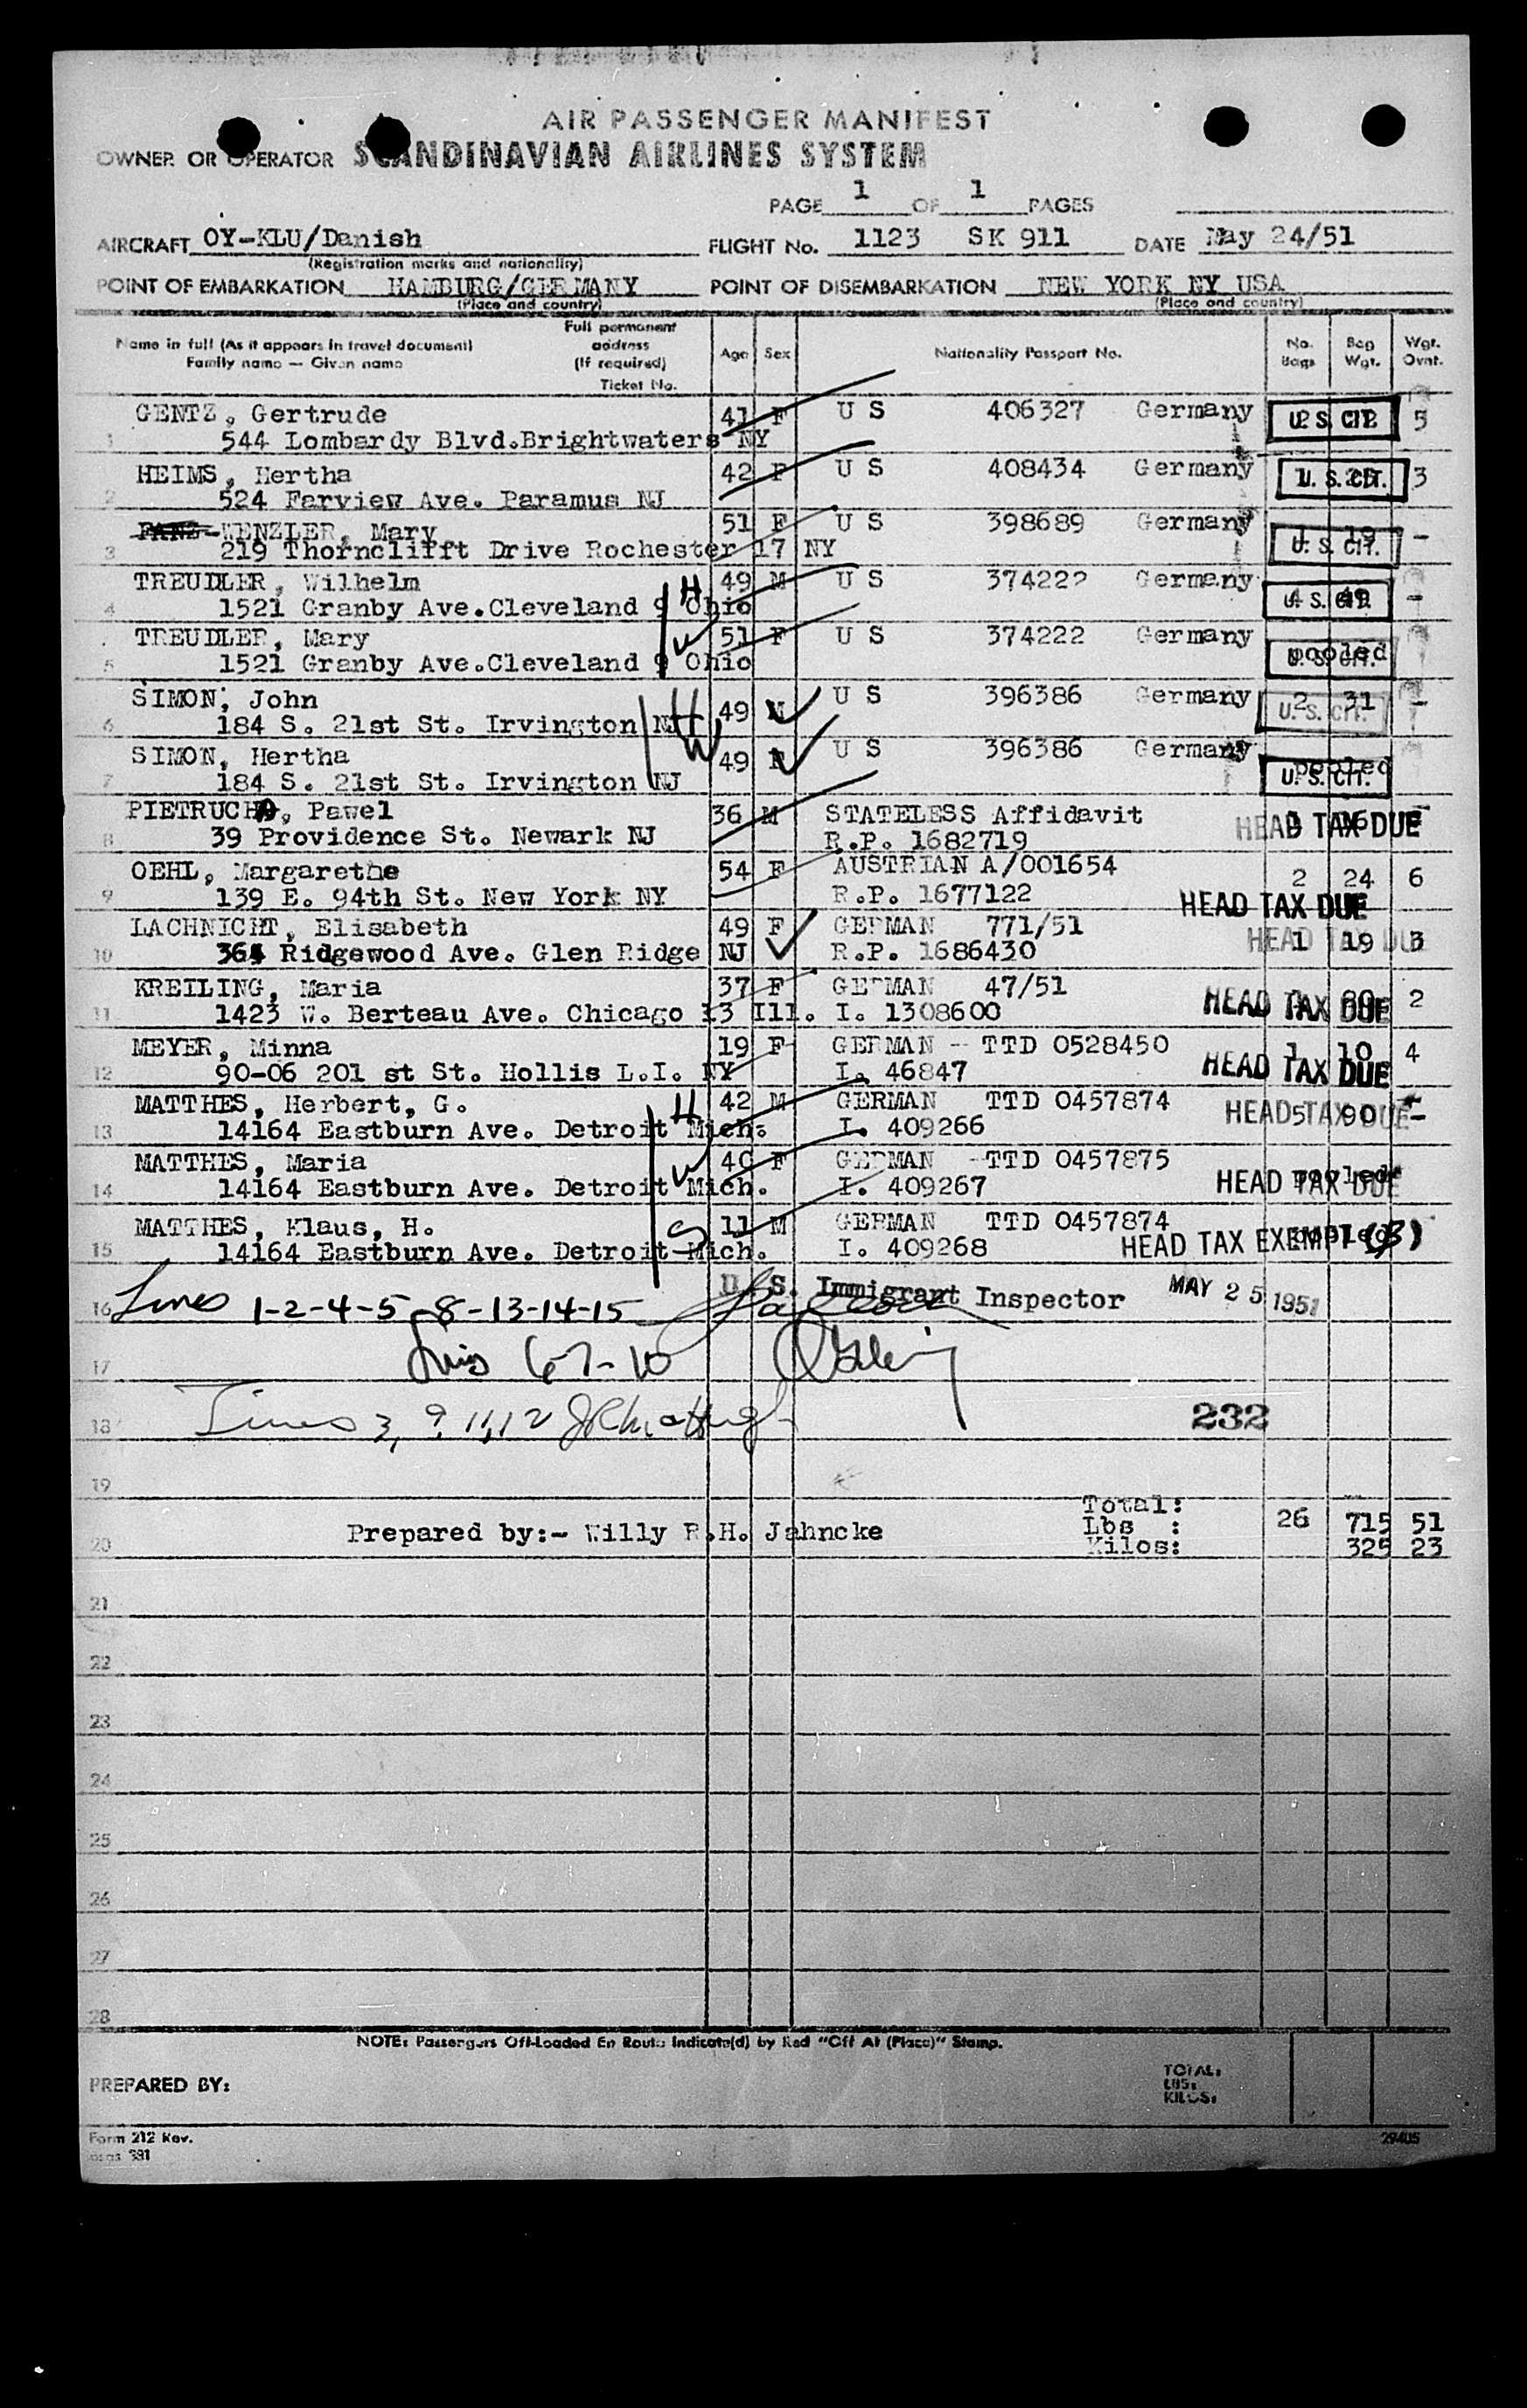 AIR PASSENGER MANIFEST
OWNER OR OPERATOR SCANDINAVIAN AIRLINES SYSTEM
PAGE 1 OF 1 PAGES
AIRCRAFT OY-KLU/Danish FLIGHT No. 1123 SK 911 DATE May 24/51
(Registration marks and nationality)
POINT OF EMBARKATION HAMBURG/GERMANY POINT OF DISEMBARKATION NEW YORK NY USA
(Place and country) (Place and country)
Name in full (As it appears in travel document) Family name — Given name Full permanent address (If required) Ticket No. Age Sex Nationality Passport No. No. Bags Bag Wgt. Wgt. Ovnt.
GENTZ, Gertrude 41 F U S 406327 Germany U. S. CIT. 5
1 544 Lombardy Blvd.Brightwaters NY
HEIMS, Hertha 42 F U S 408434 Germany U. S. CIT. 3
2 524 Farview Ave. Paramus NJ
WENZLER, Mary 51 F U S 398689 Germany 1 19 -
3 219 Thornclifft Drive Rochester 17 NY U. S. CIT.
TREUDLER, Wilhelm 49 M U S 374222 Germany
4 1521 Granby Ave.Cleveland 9 Ohio H U. S. CIT. -
TREUDLER, Mary 51 F U S 374222 Germany pooled
5 1521 Granby Ave.Cleveland 9 Ohio W U. S. CIT.
SIMON, John 49 M U S 396386 Germany 2 31 -
6 184 S. 21st St. Irvington NJ H U. S. CIT.
SIMON, Hertha 49 F U S 396386 Germany pooled
7 184 S. 21st St. Irvington NJ W U. S. CIT.
PIETRUCHA, Pawel 36 M STATELESS Affidavit
8 39 Providence St. Newark NJ R.P. 1682719 HEAD TAX DUE
OEHL, Margarethe 54 F AUSTRIAN A/001654 2 24 6
9 139 E. 94th St. New York NY R.P. 1677122 HEAD TAX DUE
LACHNICHT, Elisabeth 49 F GERMAN 771/51 HEAD TAX DUE 1 19 3
10 364 Ridgewood Ave. Glen Ridge NJ R.P. 1686430
KREILING, Maria 37 F GERMAN 47/51 HEAD TAX DUE 2
11 1423 W. Berteau Ave. Chicago 13 Ill. I. 1308600
MEYER, Minna 19 F GERMAN - TTD 0528450 1 10 4
12 90-06 201 st St. Hollis L.I. NY I. 46847 HEAD TAX DUE
MATTHES, Herbert, G. H 42 M GERMAN TTD 0457874 HEAD TAX DUE 5 90 -
13 14164 Eastburn Ave. Detroit Mich. I. 409266
MATTHES, Maria W 40 F GERMAN -TTD 0457875 pooled
14 14164 Eastburn Ave. Detroit Mich. I. 409267 HEAD TAX DUE
MATTHES, Klaus, H. S 11 M GERMAN TTD 0457874 pooled
15 14164 Eastburn Ave. Detroit Mich. I. 409268 HEAD TAX EXEMPT (3)
U. S. Immigrant Inspector MAY 25 1951
16 Lines 1-2-4-5-8-13-14-15
17 Lines 6-7-10
18 Lines 3, 9, 11, 12 232
19
Total:
20 Prepared by:- Willy R.H. Jahncke Lbs : 26 715 51
Kilos: 325 23
21
22
23
24
25
26
27
28
NOTE: Passengers Off-Loaded En Route Indicate(d) by Red "Off At (Place)" Stamp.
PREPARED BY:
TOTAL:
LBS:
KILOS:
Form 212 Rev.
381
29405